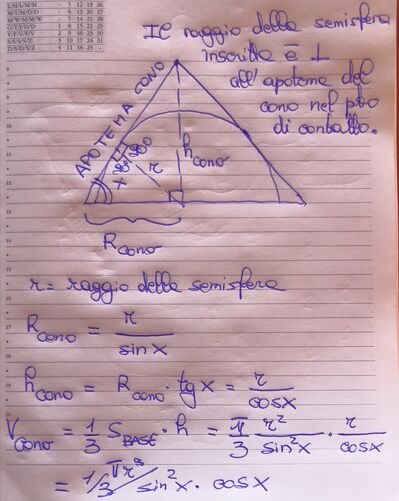 L/L/M/L/M - 5 12 19 26
M/T/M/D/D - 6 13 20 27
M/W/M/M/W - 7 14 21 28
G/T/J/D/D 1 8 15 22 29
V/F/F/V/F 2 9 16 23 30
S/S/S/S/Z 3 10 17 24 31
D/S/D/S/Z 4 11 18 25 -
Il raggio della semisfera
inscritta è ⊥
all'apotema del
cono nel pto
di contatto.
APOTEMA CONO
h cono
r
x
R cono
r = raggio della semisfera
R cono = r / sin x
h cono = R cono · tg x = r / cos x
V cono = 1/3 S BASE · h = π/3 r² / sin²x · r / cos x
= 1/3 π r³ / sin²x · cos x